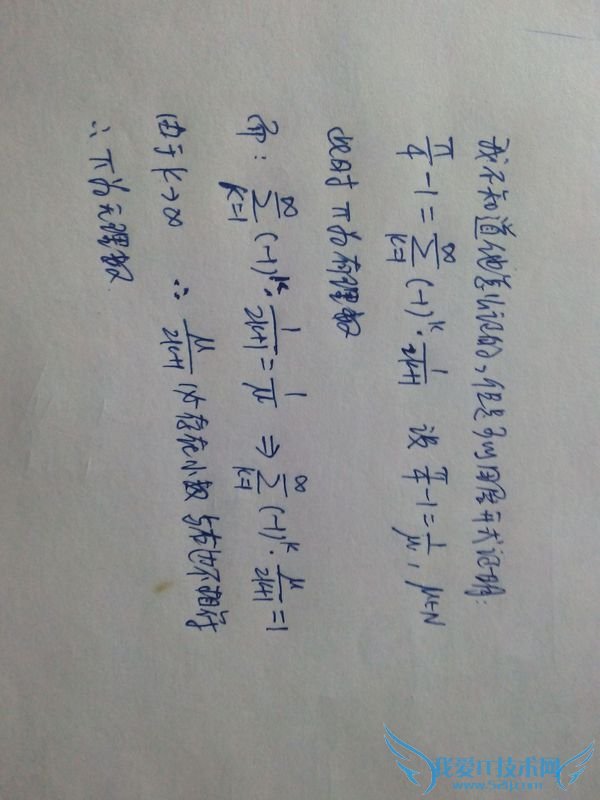 我不知道他怎么证的,但是可以用层开式证明:
π/4 - 1 = ∑_{k=1}^{∞} (-1)^k · 1/(2k+1) 设 π/4 - 1 = 1/μ , μ∈N
此时 π为有理数
即: ∑_{k=1}^{∞} (-1)^k · 1/(2k+1) = 1/μ ⇒ ∑_{k=1}^{∞} (-1)^k · μ/(2k+1) = 1
由于 k→∞ ∴ μ/(2k+1) 必存在小数 与右边不相符
∴ π为无理数.
我爱IT技术网